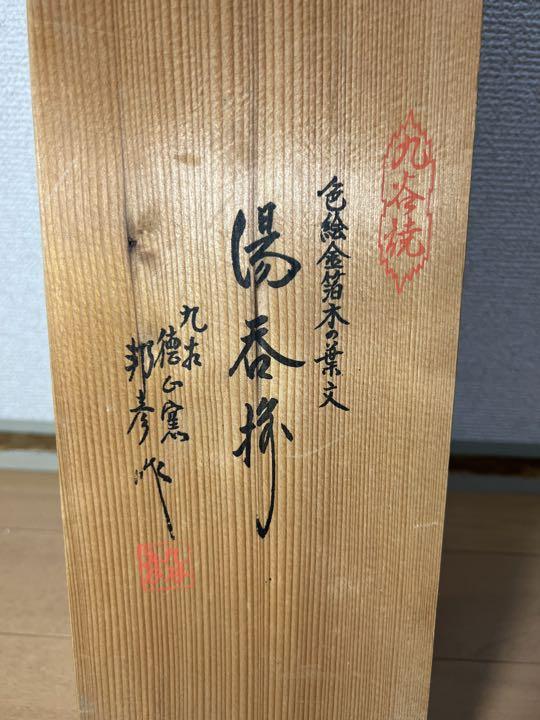 九谷焼
色絵金箔木の葉文
湯呑揃
九谷
徳山窯
邦彦作